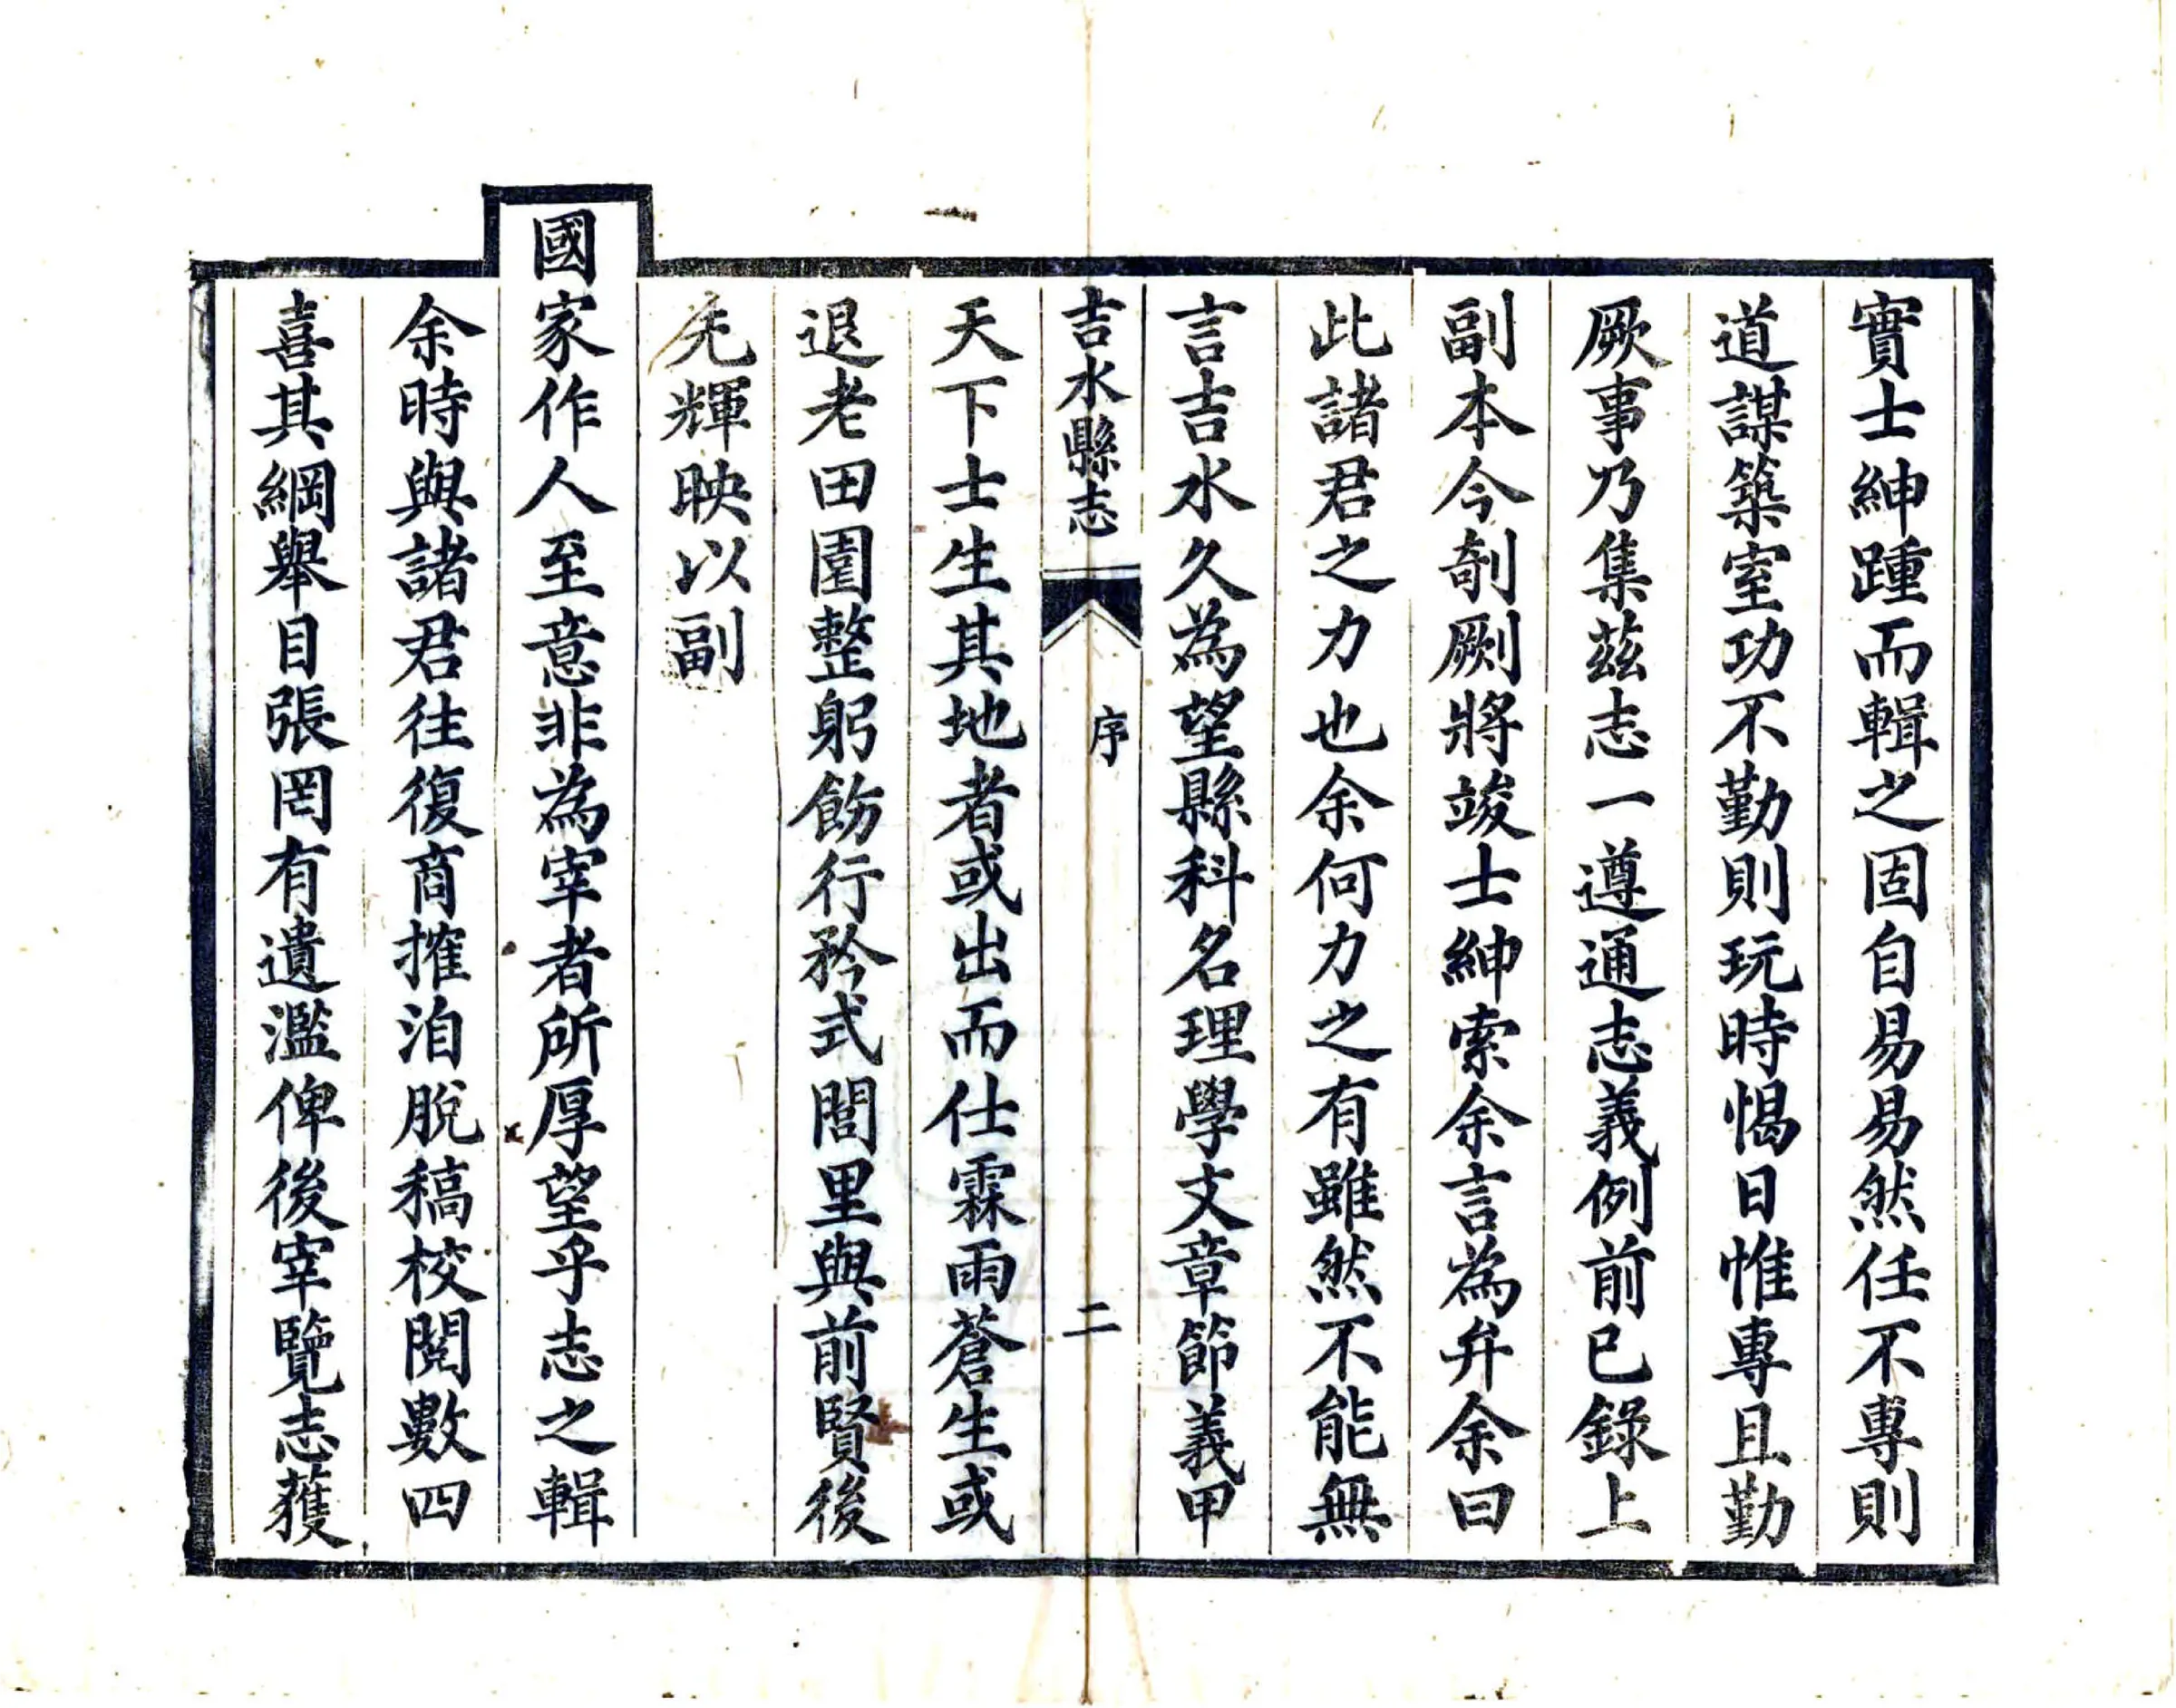 實士紳踵而輯之固自易易然任不專則
道謀築室功不勤則玩時愒日惟專且勤
厥事乃集茲志一遵通志義例前已錄上
副本今剞劂將竣士紳索余言為弁余曰
此諸君之力也余何力之有雖然不能無
言吉水久為望縣科名理學文章節義甲
吉水縣志
序
二
天下士生其地者或出而仕霖雨蒼生或
退老田園整躬飭行矜式閭里與前賢後
先輝映以副
國家作人至意非為宰者所厚望乎志之輯
余時與諸君往復商搉洎脫稿校閱數四
喜其綱舉目張罔有遺濫俾後宰覽志獲